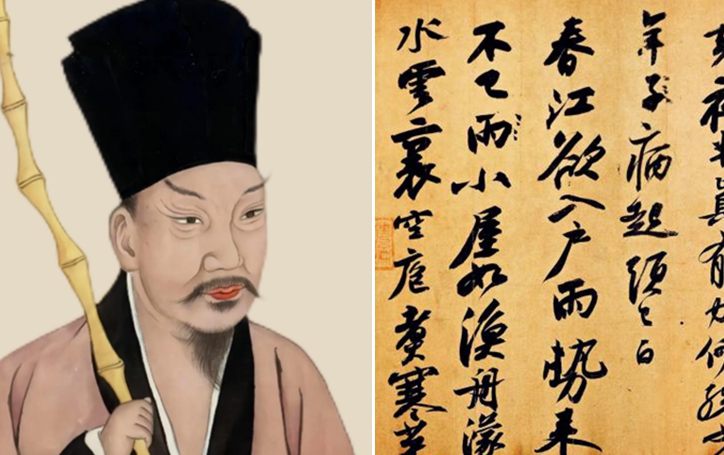 夜半真有力何殊少
年子病起頭已白
春江欲入户雨勢来
不已雨小屋如漁舟濛
水雲裏空庖煮寒菜